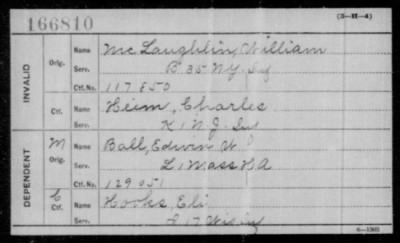 166810
(3-11-4)
INVALID
Orig.
Name McLaughlin, William
Serv. B 35 N.Y. Inf
Ctf. No. 117 850
Ctf.
Name Heim, Charles
Serv. K 1 N.J. Inf
DEPENDENT
M
Orig.
Name Ball, Edwin W.
Serv. L 1 Mass H A
Ctf. No. 129 051
C
Ctf.
Name Hooks, Eli
Serv. 17 Wis Inf